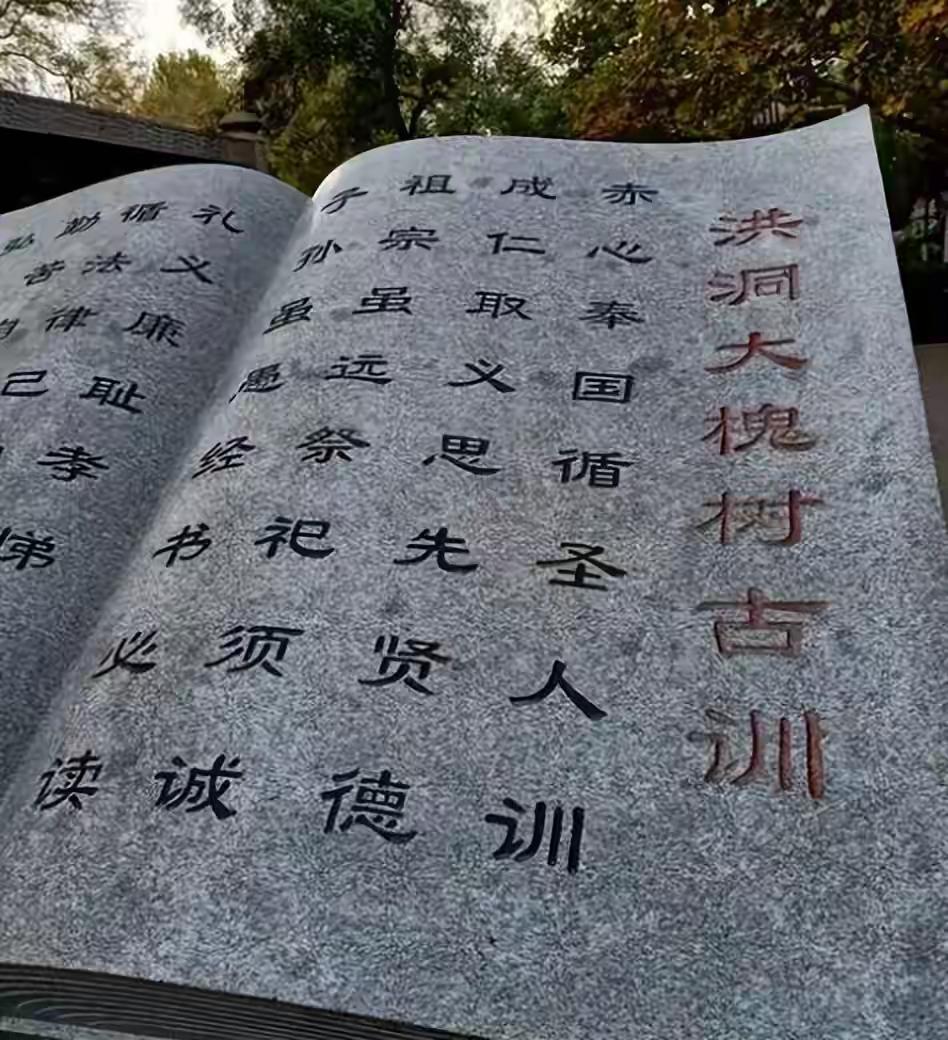 洪洞大槐树古训
赤心奉国循圣人训
成仁取义思先贤德
祖宗虽远祭祀须诚
子孙虽愚经书必读
礼义廉耻孝悌
循法律己
勤苦